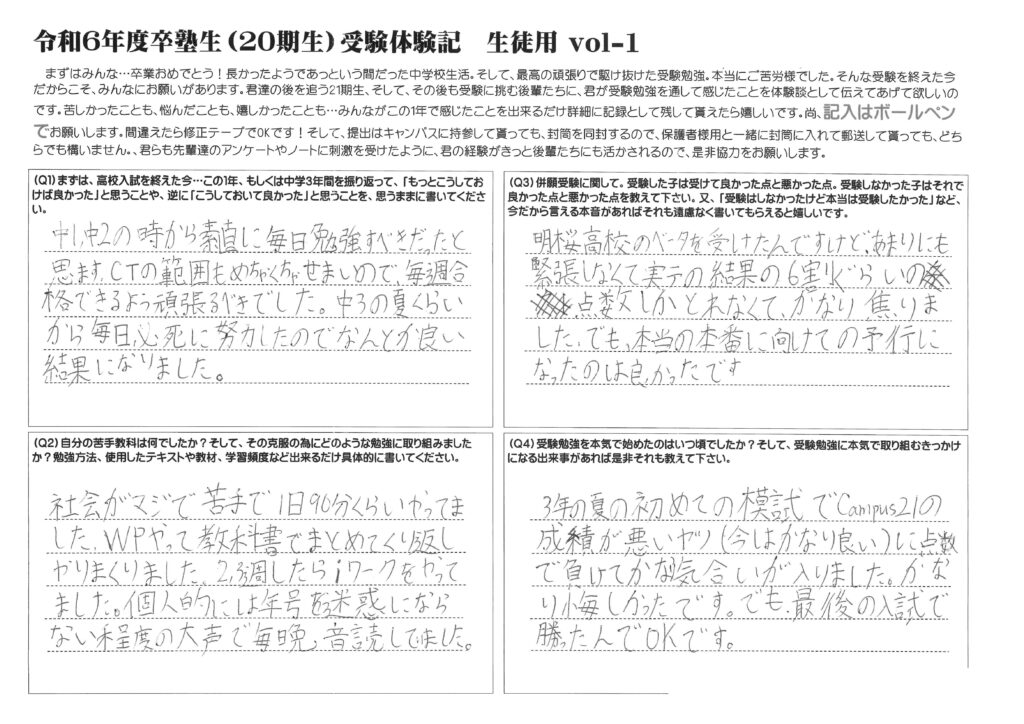 令和6年度卒塾生(20期生)受験体験記 生徒用 vol-1
まずはみんな…卒業おめでとう!長かったようであっという間だった中学校生活。そして、最高の頑張りで駆け抜けた受験勉強。本当にご苦労様でした。そんな受験を終えた今
だからこそ、みんなにお願いがあります。君達の後を追う21期生、そして、その後も受験に挑む後輩たちに、君が受験勉強を通して感じたことを体験談として伝えてあげて欲しいの
です。苦しかったことも、悩んだことも、嬉しかったことも…みんながこの1年で感じたことを出来るだけ詳細に記録として残して貰えたら嬉しいです。尚、記入はボールペン
でお願いします。間違えたら修正テープでOKです!そして、提出はキャンパスに持参して貰っても、封筒を同封するので、保護者様用と一緒に封筒に入れて郵送して貰っても、どち
らでも構いません。、君らも先輩達のアンケートやノートに刺激を受けたように、君の経験がきっと後輩たちにも活かされるので、是非協力をお願いします。
(Q1)まずは、高校入試を終えた今…この1年、もしくは中学3年間を振り返って、「もっとこうしてお
けば良かった」と思うことや、逆に「こうしておいて良かった」と思うことを、思うままに書いてくださ
い。
中1,中2の時から素直に毎日勉強すべきだったと
思ます。CTの範囲もめちゃくちゃせまいので毎週合
格できるよう頑張るべきでした。中3の夏くらい
から毎日必死に努力したのでなんとか良い
結果になりました。
(Q2)自分の苦手教科は何でしたか?そして、その克服の為にどのような勉強に取り組みました
か?勉強方法、使用したテキストや教材、学習頻度など出来るだけ具体的に書いてください。
社会がマジで苦手で1日90分くらいやってま
した。WPやって教科書でまとめてくり返し
やりまくりました。2,3週したらiワークをやって
ました。個人的には年号を迷惑になら
ない程度の大声で毎晩、音読してました。
(Q3)併願受験に関して。受験した子は受けて良かった点と悪かった点。受験しなかった子はそれで
良かった点と悪かった点を教えて下さい。又、「受験はしなかったけど本当は受験したかった」など、
今だから言える本音があればそれも遠慮なく書いてもらえると嬉しいです。
明桜高校のベータを受けたんですけど、あまりにも
緊張しなくて実テの結果の6割ぐらいの
点数しかとれなくて、かなり焦りま
した。でも、本当の本番に向けての予行に
なったのは良かったです
(Q4)受験勉強を本気で始めたのはいつ頃でしたか?そして、受験勉強に本気で取り組むきっかけ
になる出来事があれば是非それも教えて下さい。
3年の夏の初めての模試でCampus21の
成績が悪いヤツ(今はかなり良い)に点数
で負けてかな気合いが入りました。かな
り悔しかったです。でも、最後の入試で
勝ったんでOKです。